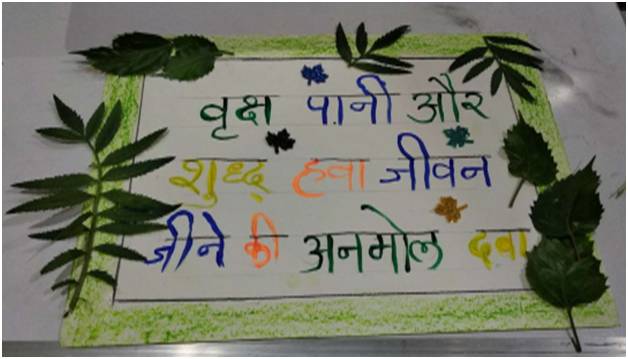 वृक्ष पानी और
शुध्द् हवा जीवन
जीने की अनमोल दवा